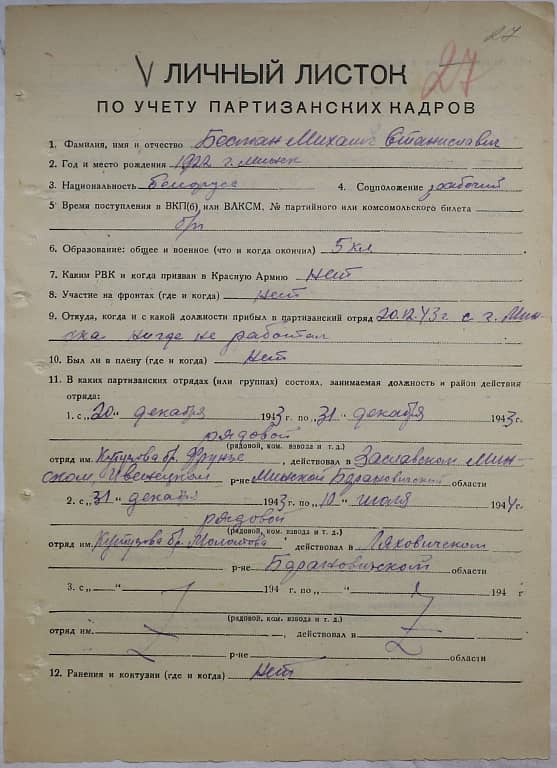 27
V ЛИЧНЫЙ ЛИСТОК 27
ПО УЧЕТУ ПАРТИЗАНСКИХ КАДРОВ
1. Фамилия, имя и отчество Бесман Михаил Станиславич
2. Год и место рождения 1922 г. Минск
3. Национальность белорусс 4. Соцположение рабочий
5 Время поступления в ВКП(б) или ВЛКСМ, № партийного или комсомольского билета
б/п
6. Образование: общее и военное (что и когда окончил) 5 кл
7. Каким РВК и когда призван в Красную Армию нет
8. Участие на фронтах (где и когда) нет
9. Откуда, когда и с какой должности прибыл в партизанский отряд 20.12.43 г. с г. Мин-
ска нигде не работал
10. Был ли в плену (где и когда) нет
11. В каких партизанских отрядах (или группах) состоял, занимаемая должность и район действия
отряда:
1. с „20“ декабря 1943 г. по „31“ декабря 1943 г.
рядовой
(рядовой, ком. взвода и т. д.)
отряд им. Кутузова бр. Фрунзе, действовал в Заславском Мин-
ском, Ивенецком р-не Минской Барановичской области
2. с „31“ декабря 1943 г. по „10“ июля 1944 г.
рядовой
(рядовой, ком. взвода и т. д.)
отряд им. Кутузова бр. Молотова, действовал в Ляховичском
р-не Барановичской области
3. с „ “ 194 г. по „ “ 194 г
(рядовой, ком. взвода и т. д.)
отряд им. , действовал в
р-не области
12. Ранения и контузии (где и когда) нет